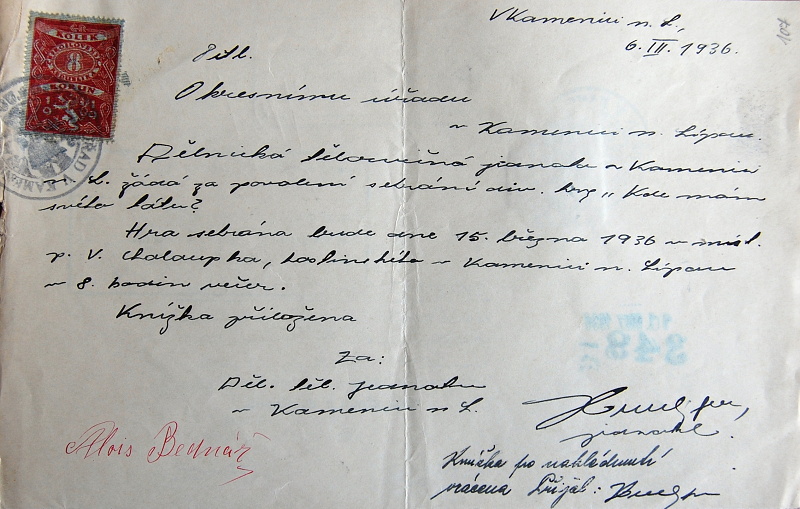 V Kamenici n. L.,
6. III. 1936.
107
KOLEK
8
Titl.
Okresnímu úřadu
v Kamenici n. Lipou.
Dělnická tělocvičná jednota v Kamenici
n. L. žádá za povolení sehrání div. hry „Kde mám
svého tátu?
Hra sehrána bude dne 15. března 1936 v míst.
p. V. Chaloupka, hostinského v Kamenici n. Lipou
v 8. hodin večer.
Knížka přiložena
Za:
Děl. těl. jednotu
v Kamenici n L.
jednatel.
Alois Bednář
Knížka po nahlédnutí
vrácena Přijal: